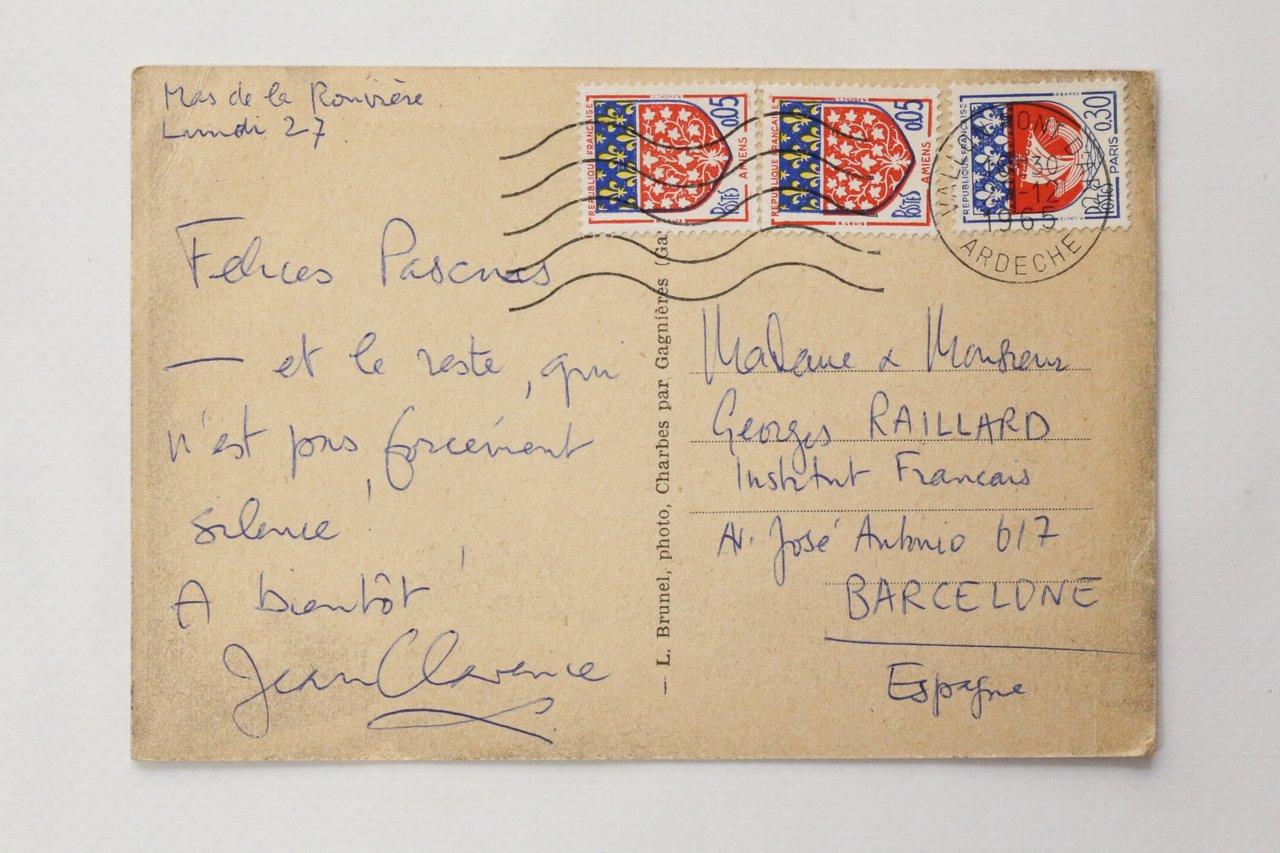 Mas de la Rouvière
Lundi 27
Felices Pascuas
— et le reste, qui
n'est pas forcément
silence !
A bientôt !
Jean Clarence
RÉPUBLIQUE FRANÇAISE
0,05
AMIENS
POSTES
RÉPUBLIQUE FRANÇAISE
0,05
AMIENS
POSTES
RÉPUBLIQUE FRANÇAISE
0,30
PARIS
POSTES
-12
1965
ARDECHE
L. Brunel, photo, Charbes par Gagnières (Ga
Madame & Monsieur
Georges RAILLARD
Institut Francais
Av. José Antonio 617
BARCELONE
Espagne